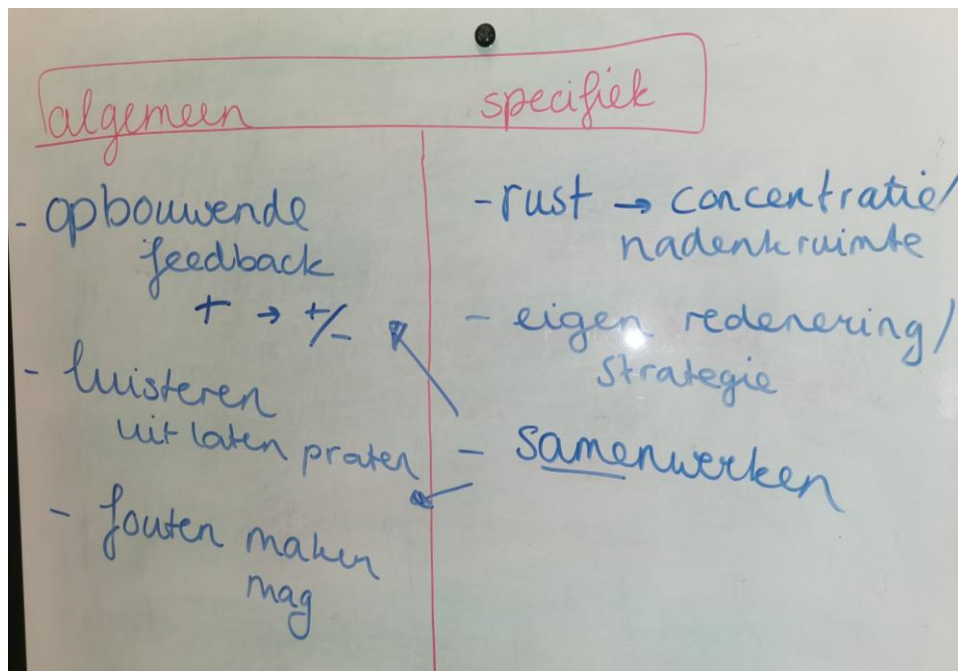 algemeen
specifiek
- opbouwende
feedback
+ → +/-
- luisteren
uit laten praten
- fouten maken
mag
- rust → concentratie/
nadenkruimte
- eigen redenering/
strategie
- samenwerken